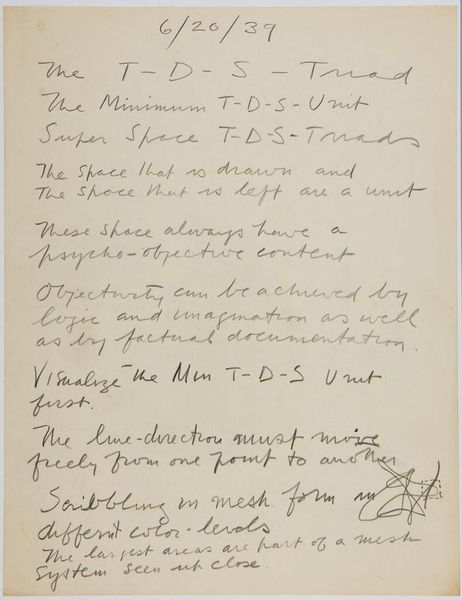 6/20/39
The T-D-S-Triad
The Minimum T-D-S-Unit
Super Space T-D-S-Triads
The space that is drawn and
The space that is left are a unit
These space always have a
psycho-objective content
Objectivity can be achieved by
logic and imagination as well
as by factual documentation.
Visualize the Min T-D-S Unit
first.
The line-direction must move
freely from one point to another
Scribbling in mesh form in
different color-levels
The largest areas are part of a mesh
system seen up close.